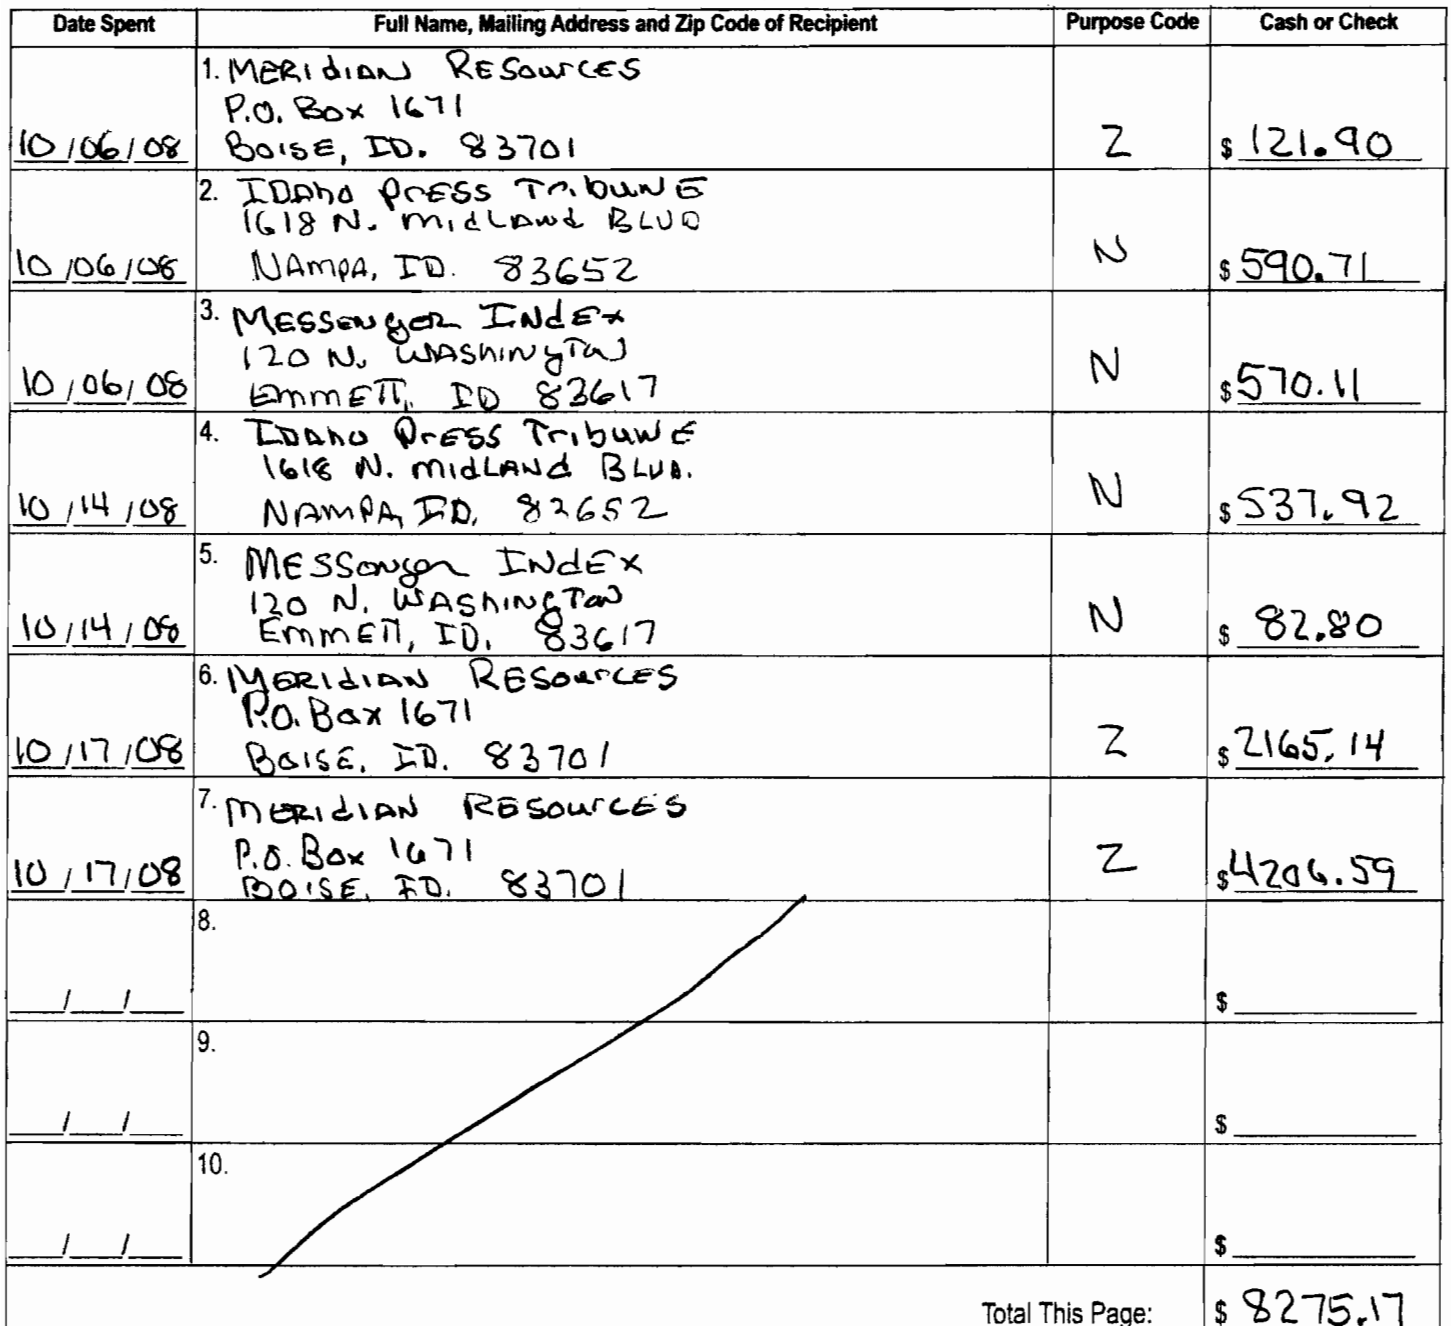 Date Spent Full Name, Mailing Address and Zip Code of Recipient Purpose Code Cash or Check
1. MERIDIAN RESOURCES
P.O. Box 1671
10/06/08 BOISE, ID. 83701 Z $ 121.90
2. IDAHO PRESS TRIBUNE
1618 N. MIDLAND BLVD
10/06/08 NAMPA, ID. 83652 N $ 590.71
3. MESSENGER INDEX
120 N. WASHINGTON
10/06/08 EMMETT, ID 83617 N $ 570.11
4. IDAHO PRESS TRIBUNE
1618 N. MIDLAND BLVD.
10/14/08 NAMPA, ID. 83652 N $ 537.92
5. MESSENGER INDEX
120 N. WASHINGTON
10/14/08 EMMETT, ID. 83617 N $ 82.80
6. MERIDIAN RESOURCES
P.O. Box 1671
10/17/08 BOISE, ID. 83701 Z $ 2165.14
7. MERIDIAN RESOURCES
P.O. Box 1671
10/17/08 BOISE, ID. 83701 Z $ 4206.59
8.
/ / $
9.
/ / $
10.
/ / $
Total This Page: $ 8275.17